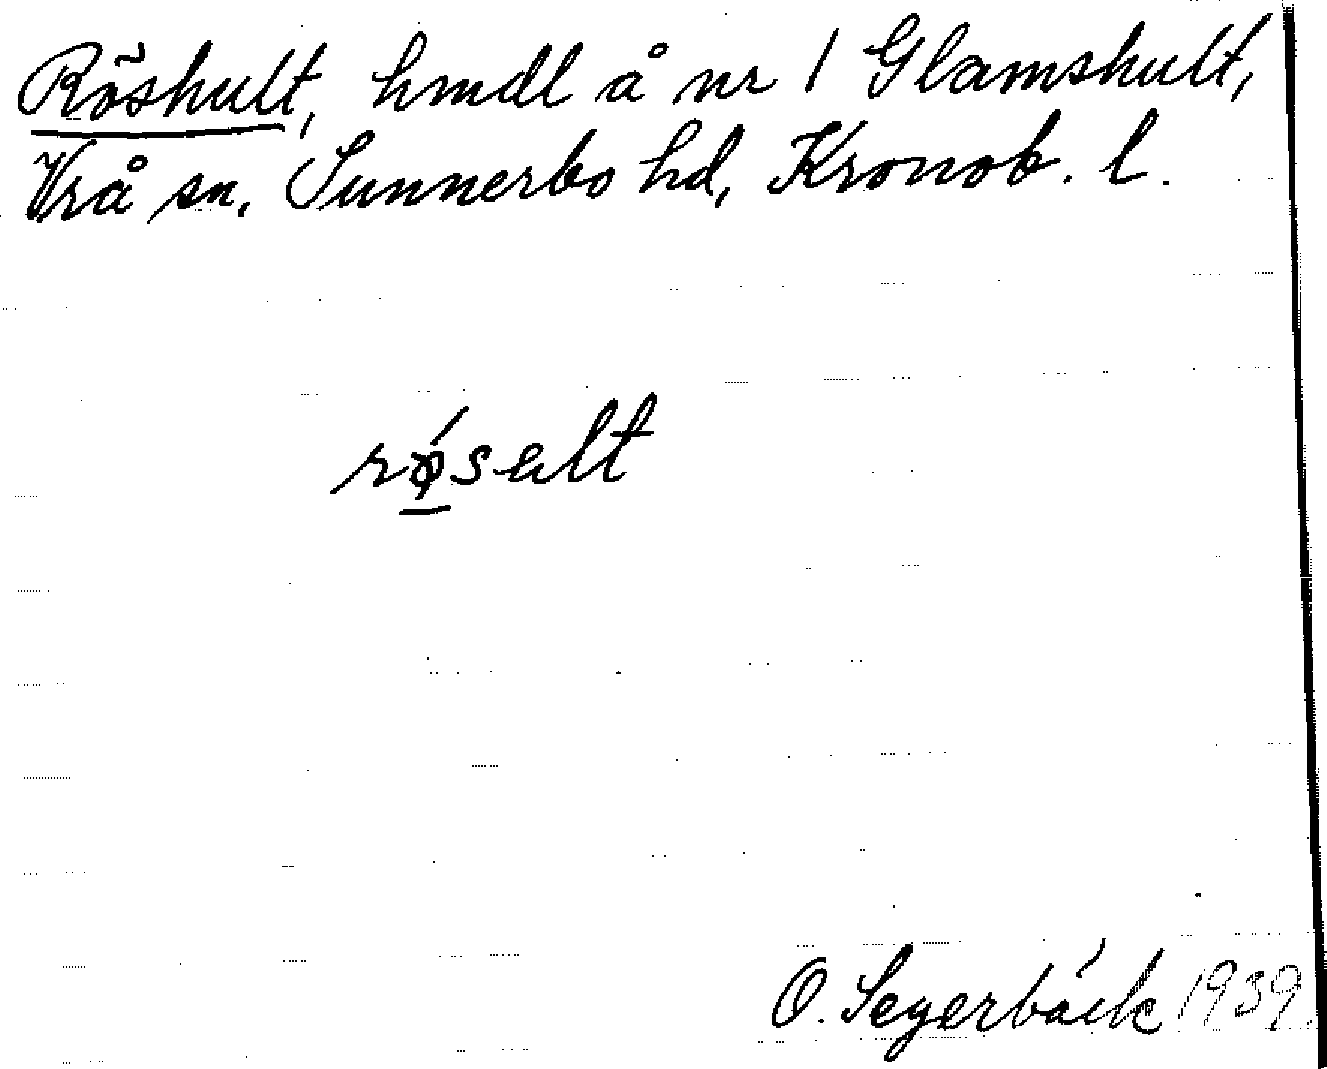 Röshult, hmdl å nr 1 Glamshult,
Vrå sn, Sunnerbo hd, Kronob. l.
rǿsult
O. Segerbäck 1939